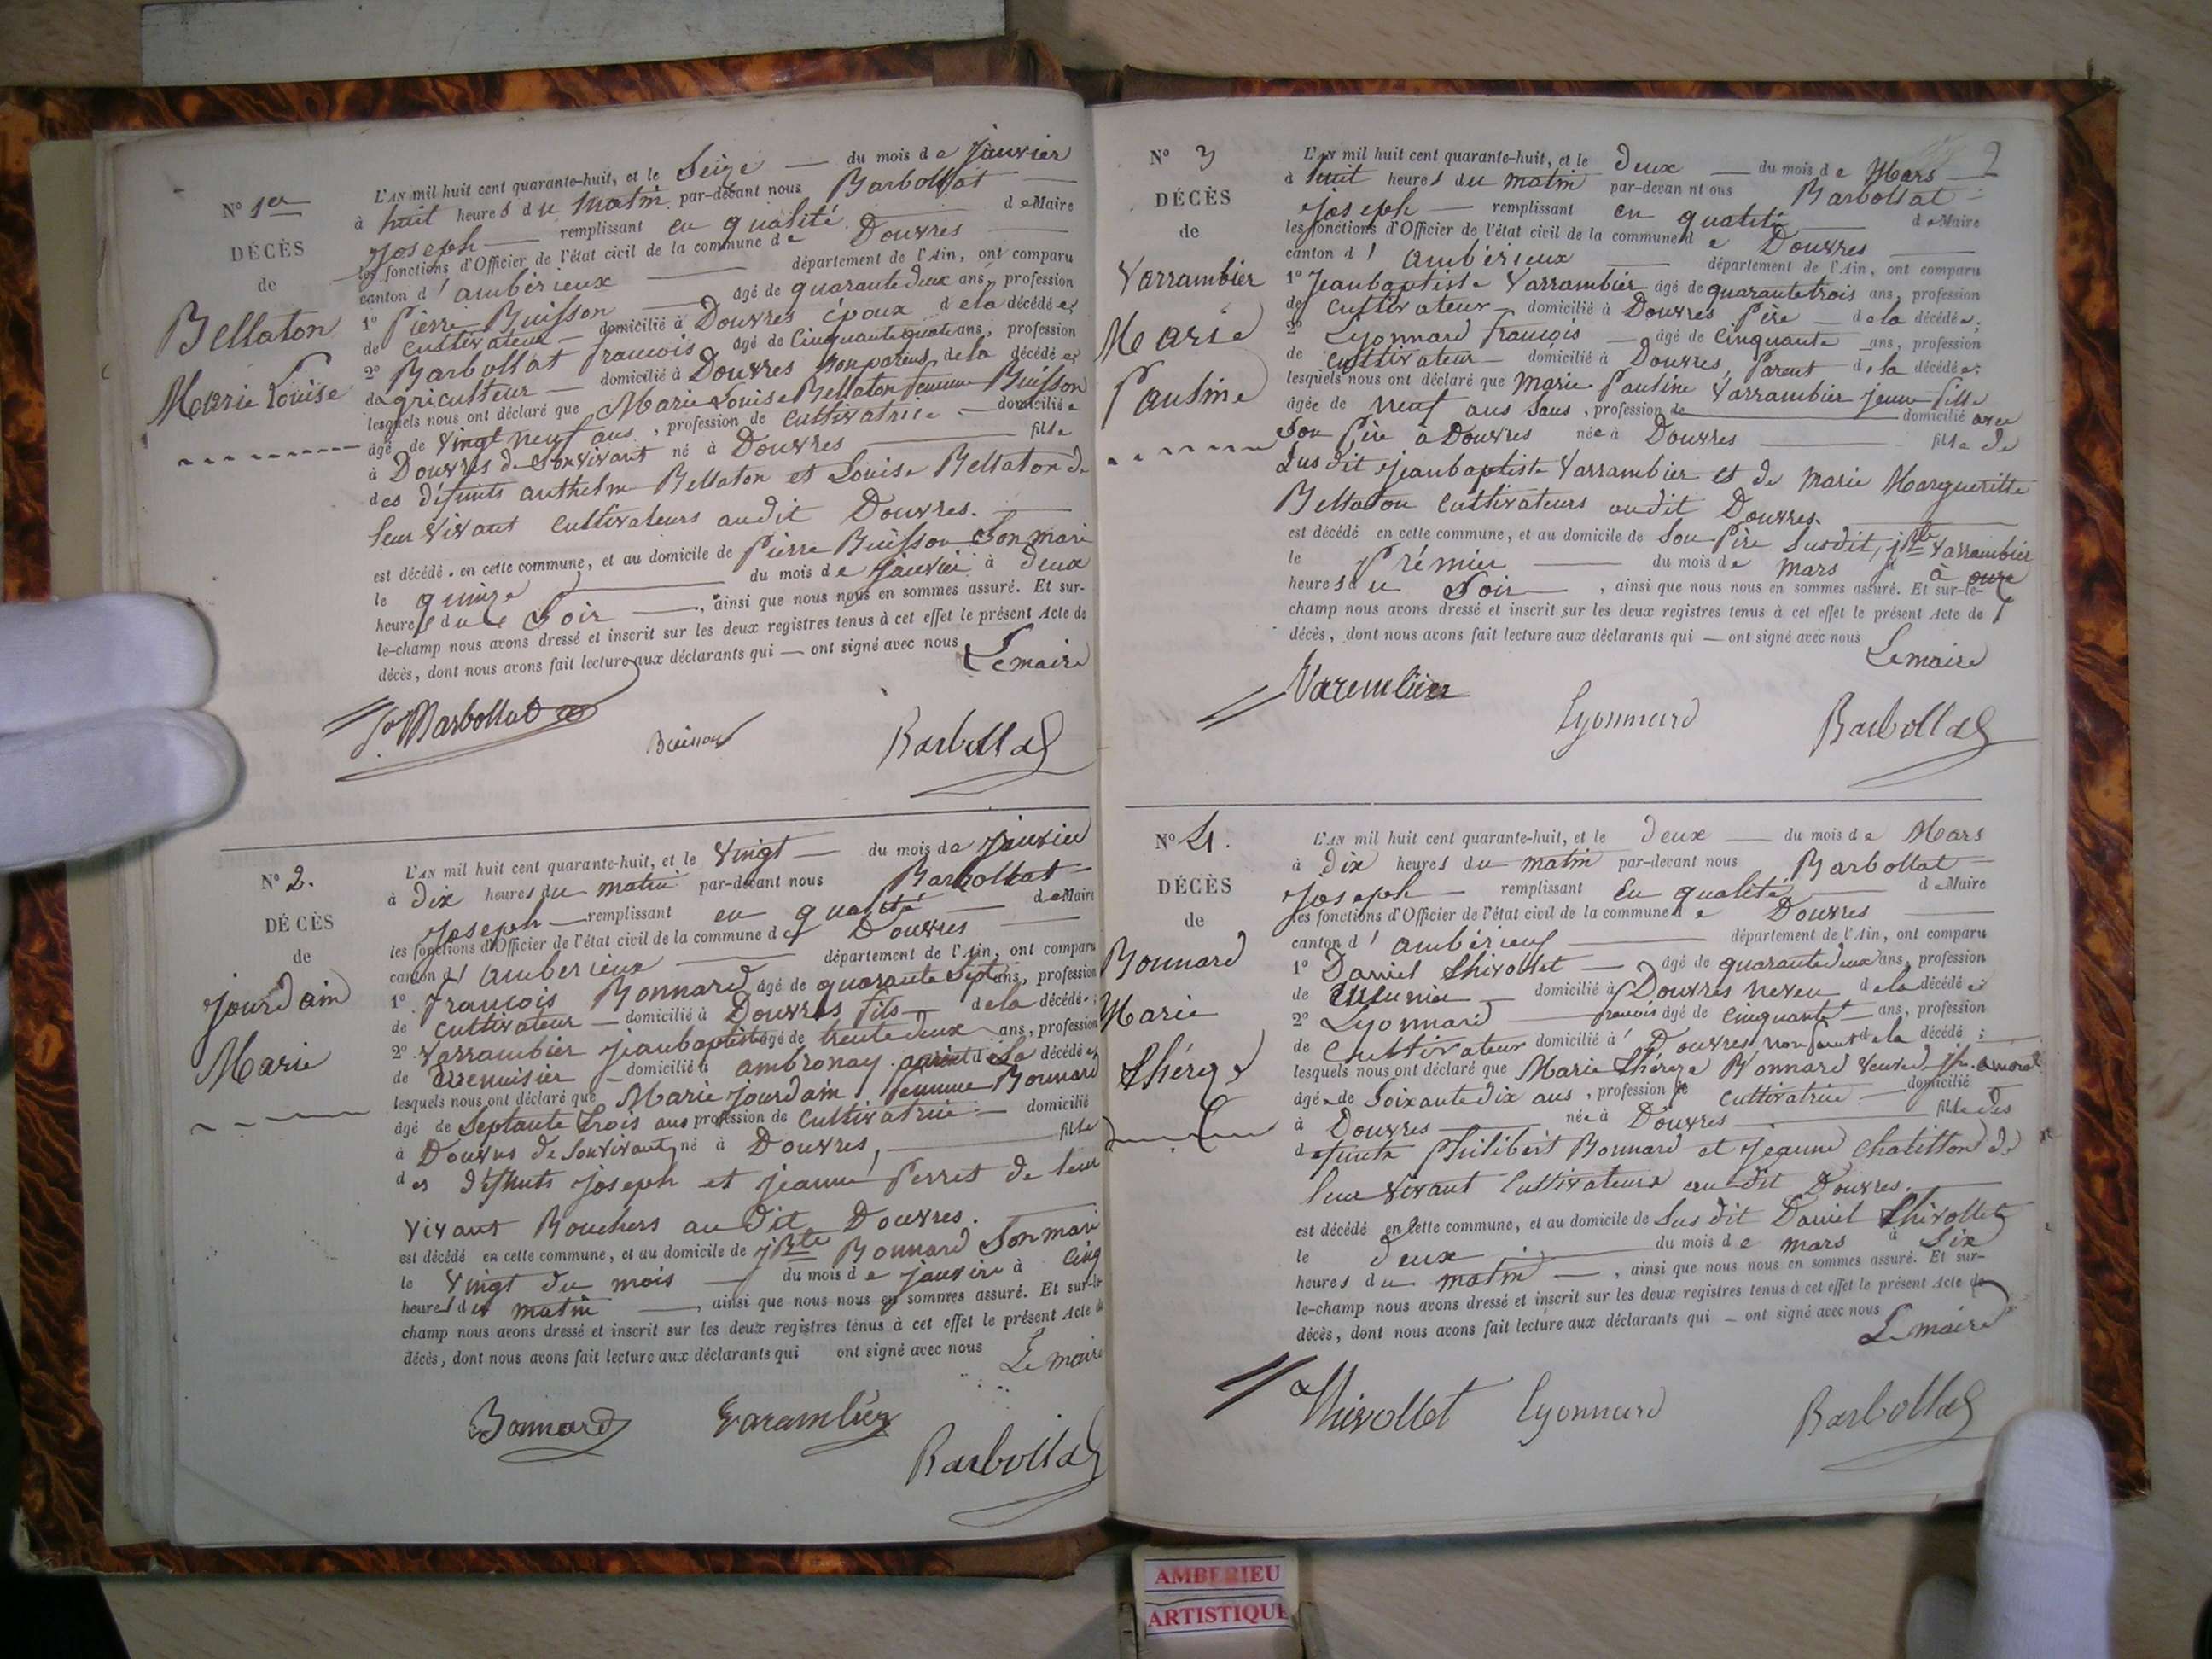 N° 1er
DÉCÈS
de
Bellaton
Marie Louise
L'AN mil huit cent quarante-huit, et le Seize — du mois de janvier
à huit heures du matin par-devant nous Barbollat
Joseph — remplissant en qualité de Maire
les fonctions d'Officier de l'état civil de la commune de Douvres
canton d'ambérieux département de l'Ain, ont comparu
1° Pierre Buisson âgé de quarante deux ans, profession
de cultivateur — domicilié à Douvres époux de la décédée,
2° Barbollat francois âgé de Cinquante quatre ans, profession
dagriculteur — domicilié à Douvres non parens, de la décédée;
lesquels nous ont déclaré que Marie Louise Bellaton femme Buisson
âgé de vingt neuf ans, profession de cultivatrice — domiciliée
à Douvres de Sonvivant né à Douvres fille
des défunts anthelme Bellaton et Louise Bellaton de
leur vivant cultivateurs audit Douvres.
est décédé . en cette commune, et au domicile de Pierre Buisson Son mari
le quinze du mois de janvier à deux
heures du Soir —, ainsi que nous nous en sommes assuré. Et sur-
le-champ nous avons dressé et inscrit sur les deux registres tenus à cet effet le présent Acte de
décès, dont nous avons fait lecture aux déclarants qui — ont signé avec nous Le maire
Barbollat Buisson Barbollat
N° 2.
DÉCÈS
de
jourdain
Marie
L'AN mil huit cent quarante-huit, et le vingt — du mois de janvier
à dix heures du matin par-devant nous Barbollat
Joseph — remplissant en qualité de Maire
les fonctions d'Officier de l'état civil de la commune de Douvres
canton d'amberieux département de l'Ain, ont comparu
1° francois Bonnard âgé de quarante Sept ans, profession
de cultivateur — domicilié à Douvres fils — de la décédée;
2° Varrambier jeanbaptiste âgé de trente deux ans, profession
de menuisier — domicilié à ambronay parent de la décédée,
lesquels nous ont déclaré que Marie jourdain, femme Bonnard
âgé de Septante trois ans profession de cultivatrice — domicilié
à Douvres de Sonvivant, né à Douvres, fille
des défunts joseph et jeanne Perret de leur
vivant Bouchers au dit Douvres.
est décédé en cette commune, et au domicile de jBte Bonnard Son mari
le vingt du mois — du mois de janvire à cinq
heures du matin —, ainsi que nous nous en sommes assuré. Et sur-le-
champ nous avons dressé et inscrit sur les deux registres tenus à cet effet le présent Acte de
décès, dont nous avons fait lecture aux déclarants qui ont signé avec nous Le maire
Bonnard Varambier Barbollat
2
N° 3
DÉCÈS
de
Varrambier
Marie
Pauline
L'AN mil huit cent quarante-huit, et le deux — du mois de Mars
à huit heures du matin par-devan nt ous Barbollat
Joseph — remplissant en qualité de Maire
les fonctions d'Officier de l'état civil de la commune de Douvres
canton d'ambérieux département de l'Ain, ont comparu
1° Jeanbaptiste Varrambier âgé de quarante trois ans, profession
de cultivateur — domicilié à Douvres Père — de la décédée;
2° Lyonnard francois — âgé de cinquante ans, profession
de cultivateur — domicilié à Douvres, Parent — de la décédée;
lesquels nous ont déclaré que Marie Pauline Varrambier jeune fille
âgée de neuf ans Sans, profession de domicilié avec
Son Père à Douvres née à Douvres fille de
Susdit jeanbaptiste Varrambier et de Marie Margueritte
Bellaton cultivateurs audit Douvres.
est décédé en cette commune, et au domicile de Son Père Susdit, jBte Varrambier
le Prémier — du mois de mars à onze
heures du Soir —, ainsi que nous nous en sommes assuré. Et sur-le-
champ nous avons dressé et inscrit sur les deux registres tenus à cet effet le présent Acte de
décès, dont nous avons fait lecture aux déclarants qui — ont signé avec nous Le maire
Varembier Lyonnard Barbollat
N° 4.
DÉCÈS
de
Bonnard
Marie
Thérèze
L'AN mil huit cent quarante-huit, et le deux — du mois de Mars
à dix heures du matin par-devant nous Barbollat
Joseph — remplissant en qualité de Maire
les fonctions d'Officier de l'état civil de la commune de Douvres
canton d'ambérieux département de l'Ain, ont comparu
1° Daniel Thivollet — âgé de quarante deux ans, profession
de — domicilié à Douvres neveu de la décédée;
2° Lyonnard francois âgé de cinquante ans, profession
de Cultivateur domicilié à Douvres, non parent de la décédé;
lesquels nous ont déclaré que Marie Thérèze Bonnard veuve
âgée de Soixante dix ans, profession de cultivatrice — domicilié
à Douvres née à Douvres fille des
défunts Philibert Bonnard et Jeanne Chatillon de
leur vivant cultivateurs au dit Douvres.
est décédé en cette commune, et au domicile de Sus dit Daniel Thivollet
le deux du mois de mars à Six
heures du matin —, ainsi que nous nous en sommes assuré. Et sur-
le-champ nous avons dressé et inscrit sur les deux registres tenus à cet effet le présent Acte de
décès, dont nous avons fait lecture aux déclarants qui — ont signé avec nous Le maire
Thivollet Lyonnard Barbollat
AMBERIEU
ARTISTIQUE